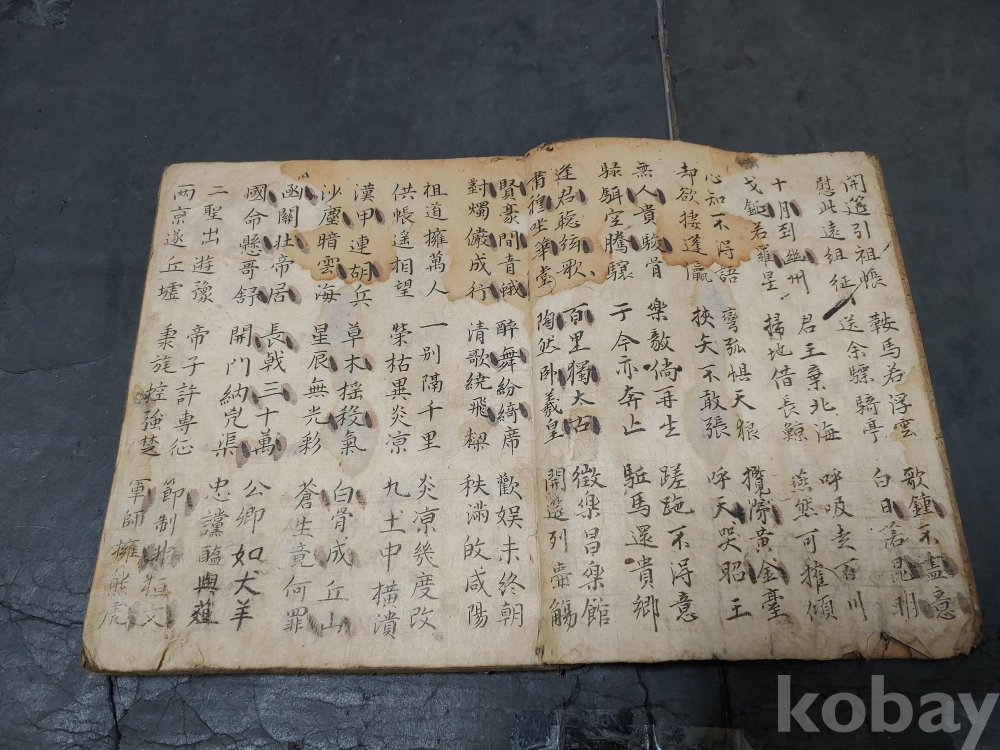 開筵引祖帳
慰此遠組征
鞍馬若浮雲
送余驃騎亭
歌鍾不盡意
白日落昆明
十月到幽州
戈鋋若羅星
君王棄北海
掃地借長鯨
呼吸走百川
燕然可摧傾
心知不得語
却欲捿蓬瀛
彎弧惧天狼
挾矢不敢張
攬涕黃金臺
呼天哭昭王
無人貴駿骨
騄駬空騰驤
樂毅倘再生
于今亦奔亡
蹉跎不得意
駈馬還貴鄉
逢君聽絃歌
肅穆坐華堂
百里獨太古
陶然卧羲皇
徵樂昌樂館
開筵列壺觴
賢豪間青蛾
對燭儼成行
醉舞紛綺席
清歌繞飛樑
歡娛未終朝
秩滿敀咸陽
祖道擁萬人
供帳遙相望
一别隔千里
榮枯異炎凉
炎凉幾度改
九土中橫潰
漢甲連胡兵
沙塵暗雲海
草木搖殺氣
星辰無光彩
白骨成丘山
蒼生竟何罪
凾關壯帝居
國命懸哥舒
長戟三十萬
開門納兇渠
公卿如犬羊
忠讜醢與葅
二聖出遊豫
兩京遂丘墟
帝子許專征
秉旄控強楚
節制非桓文
軍師擁熊虎
kobay